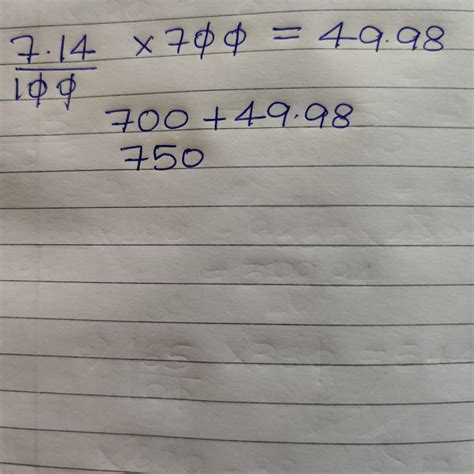 7.14/100 × 700 = 49.98
700 + 49.98
750